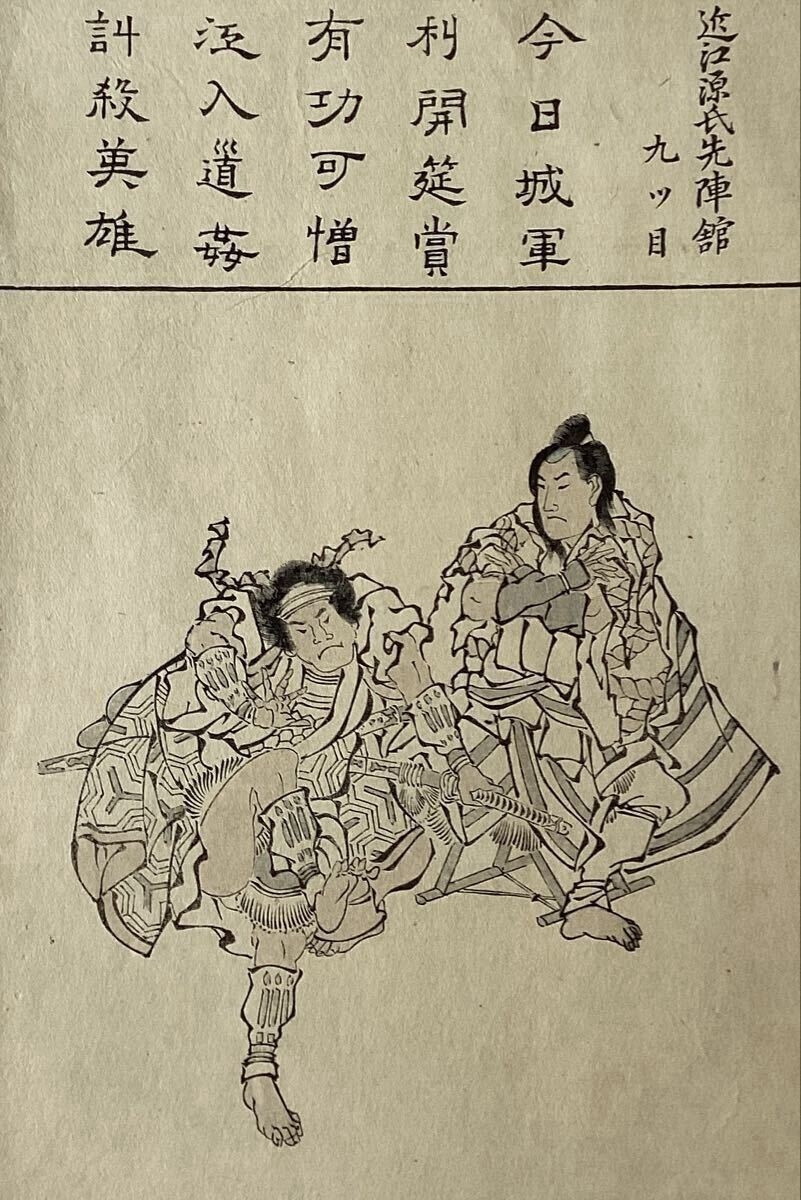 近江源氏先陣舘
九ッ目
今日城軍
利開筵賞
有功可憎
江入道姦
計殺英雄